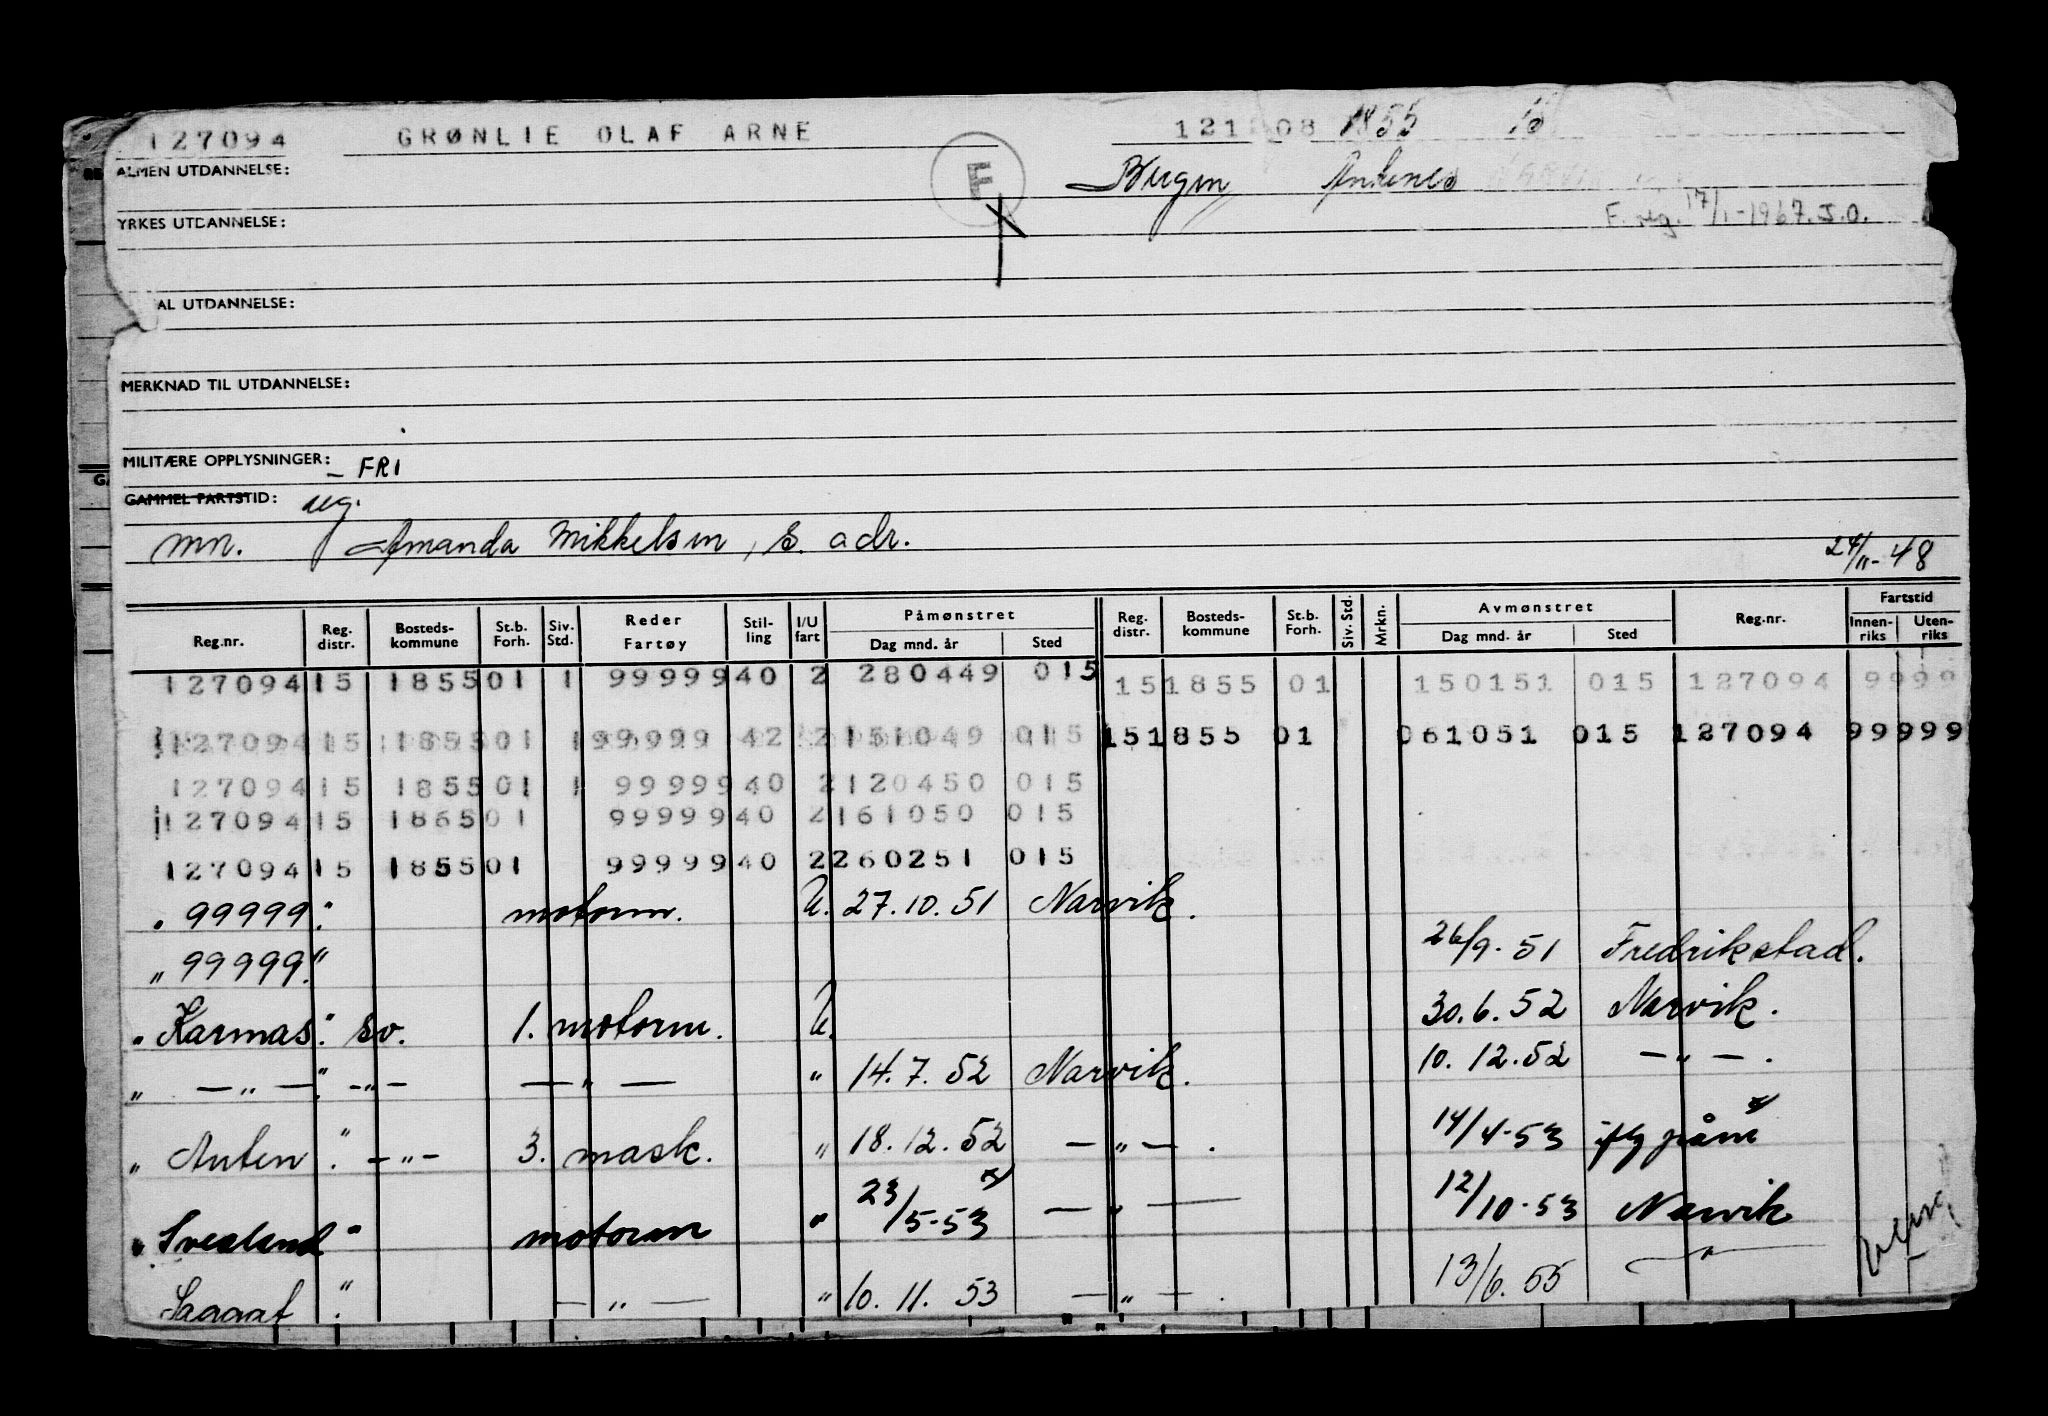 127094 GRØNLIE OLAF ARNE 121208 1855
ALMEN UTDANNELSE: F Ankenes
YRKES UTDANNELSE: F. reg. 17/1-1967. J.O.
AL UTDANNELSE:
MERKNAD TIL UTDANNELSE:
MILITÆRE OPPLYSNINGER: - FRI
GAMMEL FARTSTID: reg.
mn. Amanda Mikkelsen, s. adr. 24/11-48
Reg.nr. Reg. distr. Bosteds-kommune St.b. Forh. Siv. Std. Reder Fartøy Stil-ling I/U fart Påmønstret Dag mnd. år Sted Reg. distr. Bosteds-kommune St.b. Forh. Siv. Std. Mrkn. Avmønstret Dag mnd. år Sted Reg.nr. Fartstid Innen-riks Uten-riks
127094 15 1855 01 1 99999 40 2 280449 015 15 1855 01 150151 015 127094 9999
127094 15 1855 01 1 99999 42 2 151049 015 15 1855 01 061051 015 127094 99999
127094 15 1855 01 1 99999 40 2 120450 015
127094 15 1865 01 99999 40 2 161050 015
127094 15 1855 01 99999 40 2 260251 015
"99999". motorm. U. 27.10.51 Narvik.
"99999". 26/9-51 Fredrikstad.
"Karmas". sv. 1. motorm. U. 30.6.52 Narvik.
" — " — ". — " — — " — " 14.7.52 Narvik. 10.12.52 — " — .
" Anten ". — " — 3. mask. " 18.12.52 — " — . 14/4-53 iflg påm x/
"Svealand" motorm " 23/5-53 x/ — " — 12/10-53 Narvik
Saggat ". — " — " 10.11.53 — " — . 13/6.55 — " —